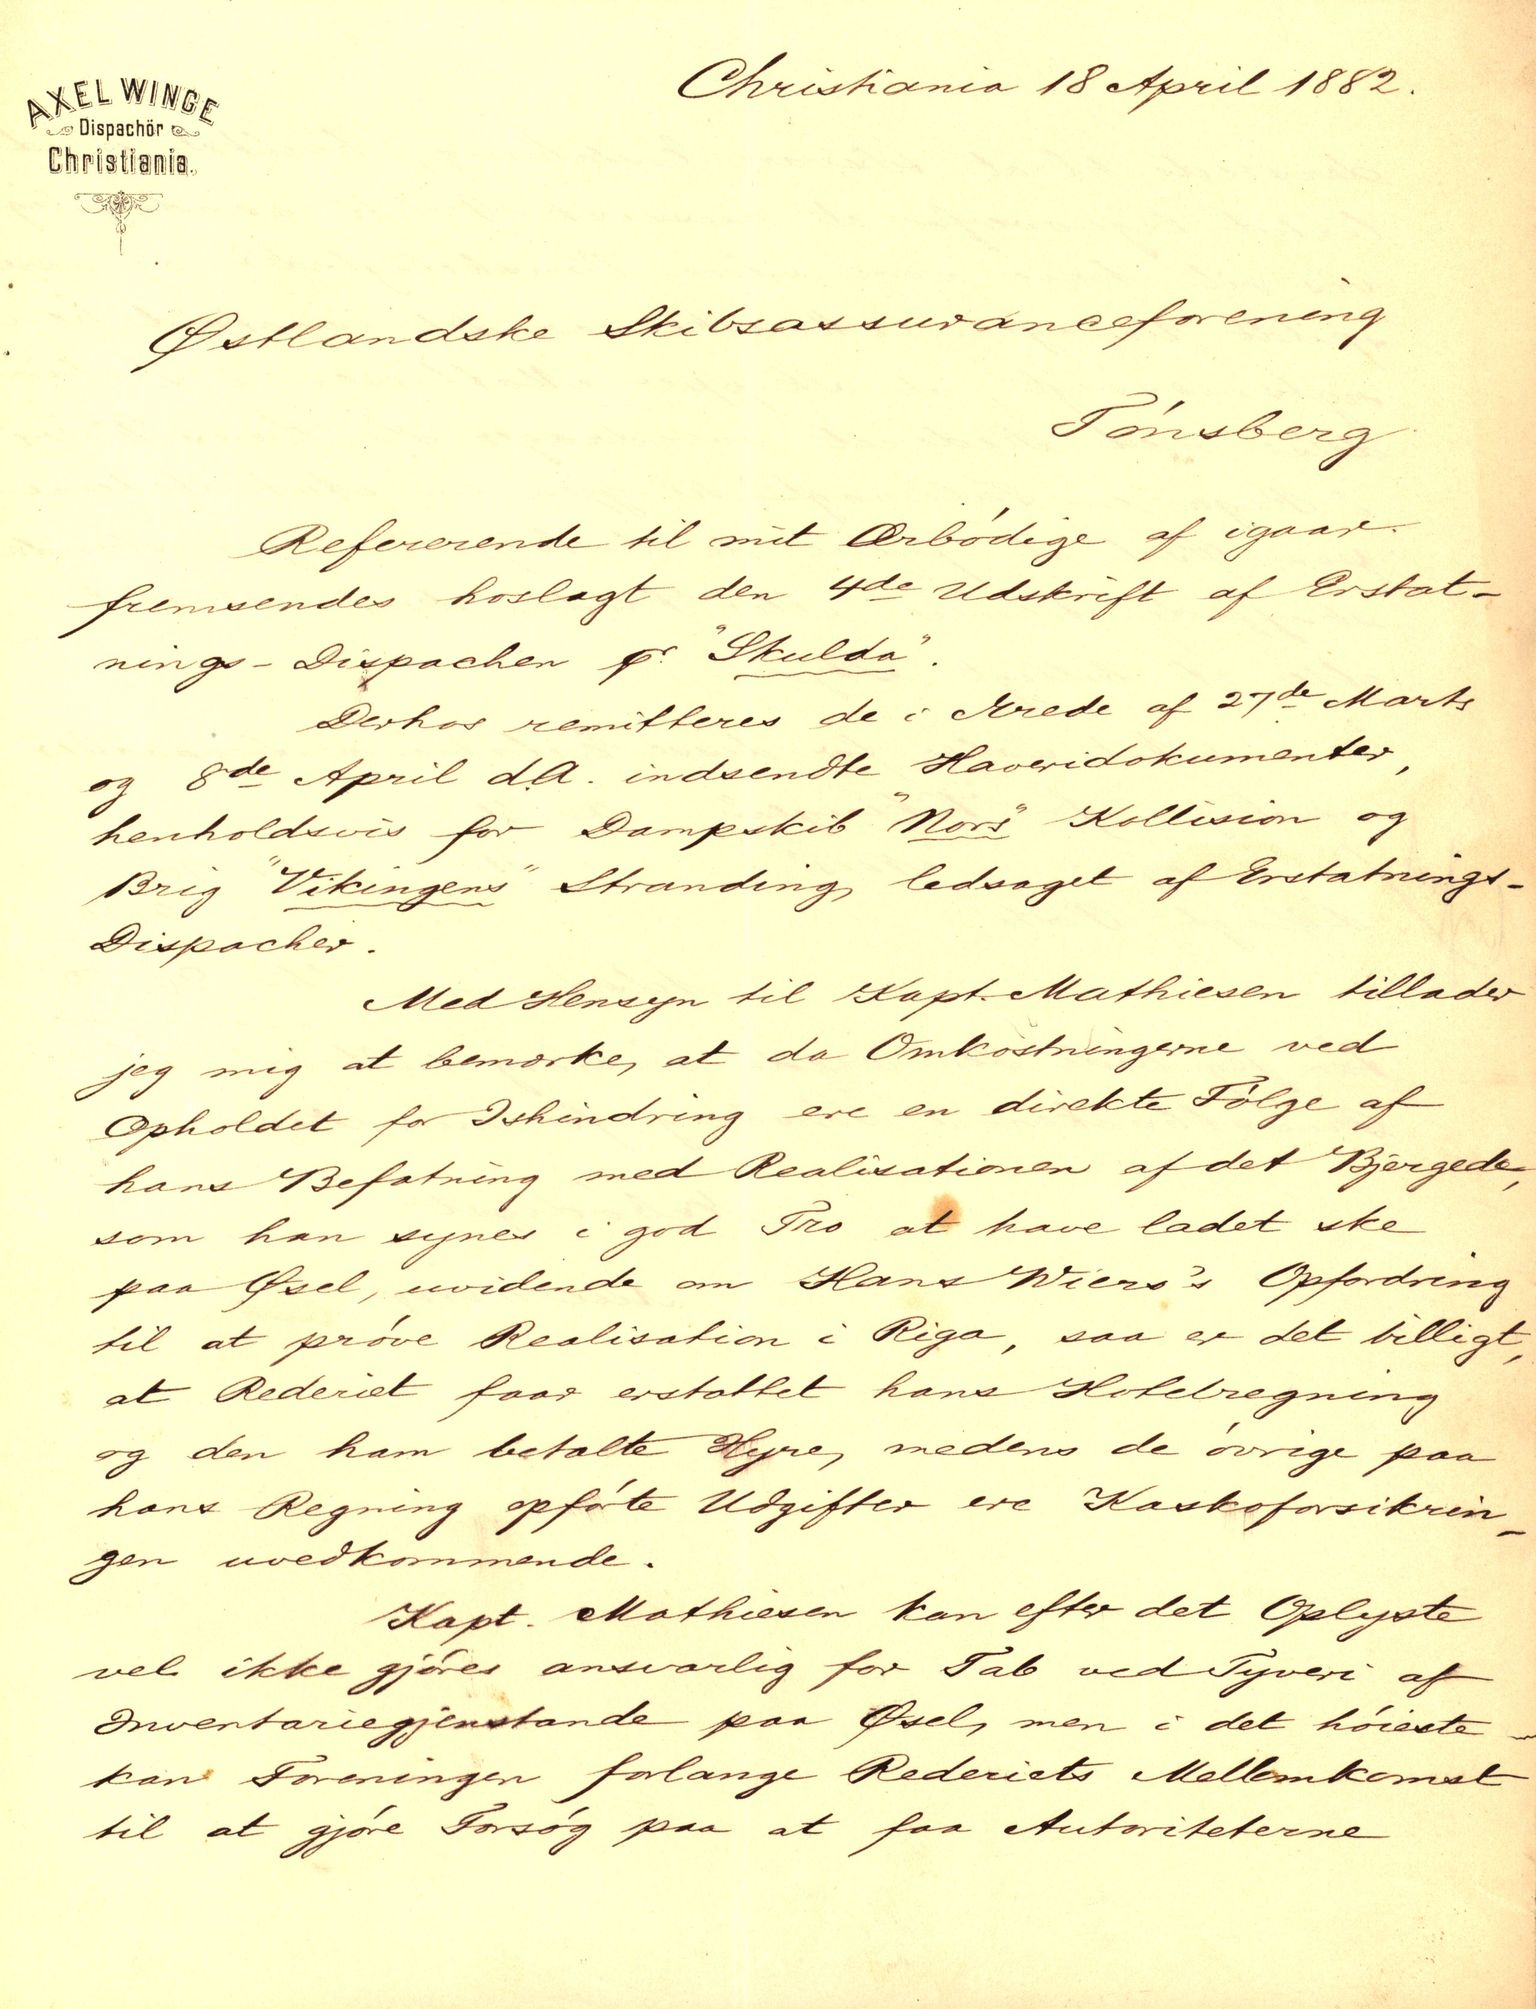 AXEL WINGE
Dispachör
Christiania.
Christiania 18 April 1882.
Østlandske Skibsassuranceforening
Tónsberg
Refererende til mit Ærbódige af igaar
fremsendes hoslagt den 4de Udskrift af Erstat-
nings-Dispachen pr. "Skulda".
Derhos remitteres de i Ærede af 27de Marts
og 8de April d.A. indsendte Havaridokumenter,
henholdsvis for Dampskib "Nors" Kollision og
Brig "Vikingens" Stranding, ledsaget af Erstatnings-
Dispacher.
Med Hensyn til Kapt. Mathiesen tillader
jeg mig at bemærke, at da Omkostningerne ved
Opholdet for Ishindring ere en direkte Fólge af
hans Befatning med Realisationen af det Bjergede,
som han synes i god Tro at have ladet ske
paa Øsel, uvidende om Hans Wiers's Opfordring
til at próve Realisation i Riga, saa er det billigt,
at Rederiet faar erstattet hans Hotelregning
og den ham betalte Hyre, medens de óvrige paa
hans Regning opfórte Udgifter ere Kaskoforsikrin-
gen uvedkommende.
Kapt. Mathiesen kan efter det Oplyste
vel ikke gjóres ansvarlig for Tab ved Tyveri af
Inventariegjenstande paa Øsel, men i det hóieste
kan Foreningen forlange Rederiets Mellemkomst
til at gjóre Forsóg paa at faa Autoriteterne